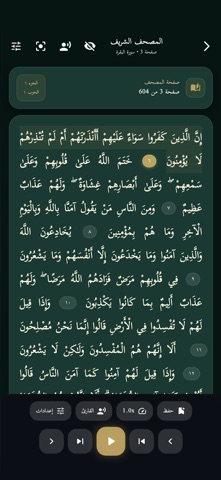 المصحف الشريف
صفحة 3 • سورة البقرة
صفحة المصحف
صفحة 3 من 604
الجزء ١
الحزب ١
إِنَّ الَّذِينَ كَفَرُوا سَوَاءٌ عَلَيْهِمْ أَأَنذَرْتَهُمْ أَمْ لَمْ تُنذِرْهُمْ
لَا يُؤْمِنُونَ ٦ خَتَمَ اللَّهُ عَلَىٰ قُلُوبِهِمْ وَعَلَىٰ
سَمْعِهِمْ ۖ وَعَلَىٰ أَبْصَارِهِمْ غِشَاوَةٌ ۖ وَلَهُمْ عَذَابٌ
عَظِيمٌ ٧ وَمِنَ النَّاسِ مَن يَقُولُ آمَنَّا بِاللَّهِ وَبِالْيَوْمِ
الْآخِرِ وَمَا هُم بِمُؤْمِنِينَ ٨ يُخَادِعُونَ اللَّهَ
وَالَّذِينَ آمَنُوا وَمَا يَخْدَعُونَ إِلَّا أَنفُسَهُمْ وَمَا يَشْعُرُونَ
٩ فِي قُلُوبِهِم مَّرَضٌ فَزَادَهُمُ اللَّهُ مَرَضًا ۖ وَلَهُمْ
عَذَابٌ أَلِيمٌ بِمَا كَانُوا يَكْذِبُونَ ١٠ وَإِذَا قِيلَ
لَهُمْ لَا تُفْسِدُوا فِي الْأَرْضِ قَالُوا إِنَّمَا نَحْنُ مُصْلِحُونَ
١١ أَلَا إِنَّهُمْ هُمُ الْمُفْسِدُونَ وَلَٰكِن لَّا يَشْعُرُونَ
١٢ وَإِذَا قِيلَ لَهُمْ آمِنُوا كَمَا آمَنَ النَّاسُ قَالُوا
حفظ
1.0x
القارئ
إعدادات